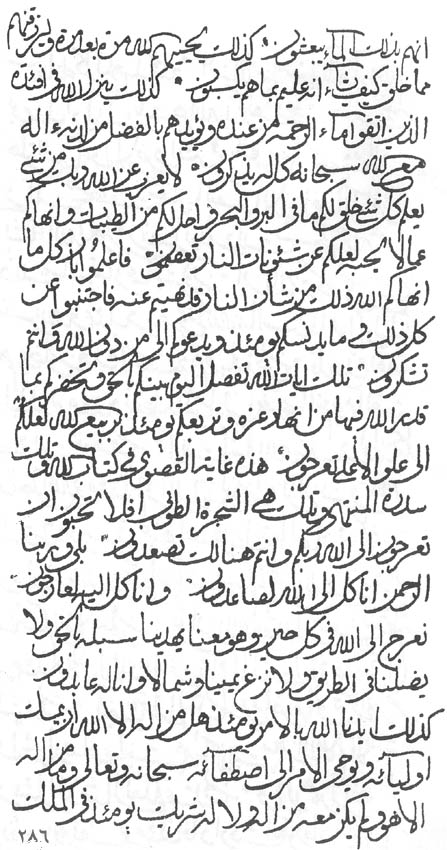 انهم بذلك الماء يبعثون كذلك يحييهم الله مرة بعد مرة ويرزقهم
مما خلق كيف يشاء انه عليم بما هم يكسبون كذلك ينزل الله في افئدة
الذين اتقوا ماء الرحمة من عنده ويؤيدهم بالفضل من لدنه ءاله
مع الله سبحانه كل له يذكرون لا يعزب عن الله ربك من شئ
يعلم كل شئ خلق لكم ما في البر والبحر واحل لكم من الطيبات وانهاكم
عما لا يحبه لعلكم عن شئونات النار تعقلون فاعلموا بان كل ما
انهاكم الله ذلك من شأن النار قد نهيتم عنه فاجتنبوا عن
كل ذلك وما يدنسكم يومئذ ويدعوكم الى من دون الله وانتم
تشكرون تلك ايات الله تفصل اليوم بينكم بالحق وتخبركم بما
قدر الله فيها من انهار عزه وتربكم يومئذ ربيع الله لعلكم
الى علو الاعلى تعرجون هذه غاية القصوى في كتاب الله وتلك
سدرة المنتهى وتلك هي الشجرة الطوبى افلا تحبون ان
تعرجون الى الله ربكم وانتم هنالك تصعدون بلى وربنا
الرحمن انا كل الى الله لصاعدون وانا كل اليه لعارجون
نعرج الى الله في كل حين وهو معنا يهدينا سبله بالحق ولا
يضلنا في الطريق ولا نزغ يمينا وشمالا وانا له عابدون
كذلك ايدنا الله بالامر يومئذ هل من اله الا الله ان يميت
اوليائه ويوحي الامر الى اصطفائه سبحانه وتعالى وما من اله
الا هو ولم يكن معه من اله ولا له شريك يومئذ في الملك
٢٨٦